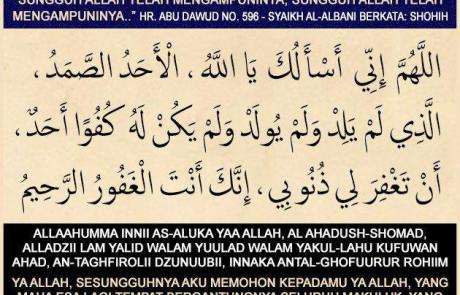 SUNGGUH ALLAH TELAH MENGAMPUNINYA, SUNGGUH ALLAH TELAH
MENGAMPUNINYA.." HR. ABU DAWUD NO. 596 - SYAIKH AL-ALBANI BERKATA: SHOHIH
اللَّهُمَّ إِنِّي أَسْأَلُكَ يَا اللَّهُ ، الْأَحَدُ الصَّمَدُ ،
الَّذِي لَمْ يَلِدْ وَلَمْ يُولَدْ وَلَمْ يَكُنْ لَهُ كُفُوًا أَحَدٌ ،
أَنْ تَغْفِرَ لِي ذُنُوبِي ، إِنَّكَ أَنْتَ الْغَفُورُ الرَّحِيمُ
ALLAAHUMMA INNII AS-ALUKA YAA ALLAH, AL AHADUSH-SHOMAD,
ALLADZII LAM YALID WALAM YUULAD WALAM YAKUL-LAHU KUFUWAN
AHAD, AN-TAGHFIROLII DZUNUUBII, INNAKA ANTAL-GHOFUURUR ROHIIM
YA ALLAH, SESUNGGUHNYA AKU MEMOHON KEPADAMU YA ALLAH, YANG
MAHA ESA LAGI TEMPAT BERGANTUNGNYA SELURUH MAKHLUK, YANG